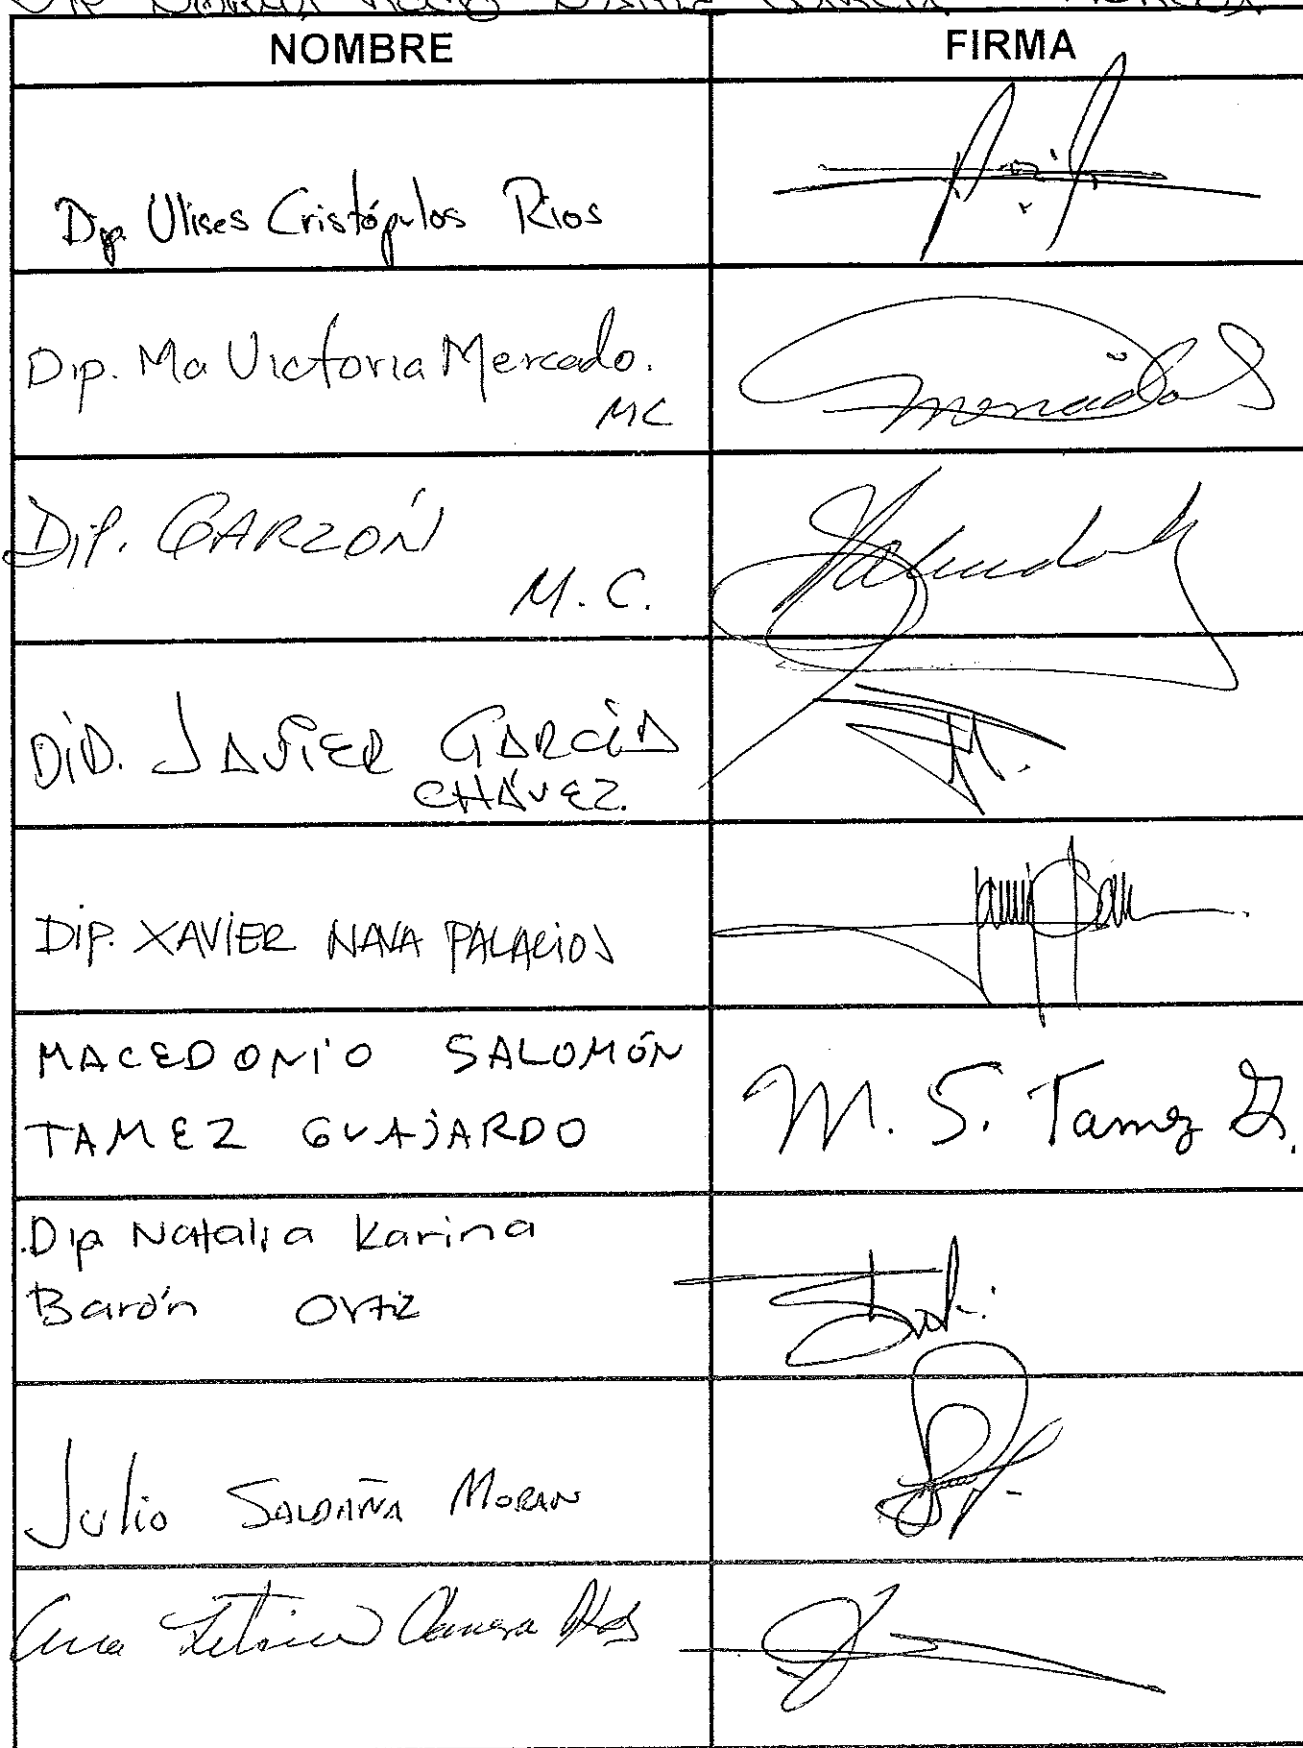 NOMBRE FIRMA
Dip Ulises Cristópulos Rios
Dip. Ma Victoria Mercado.
MC
Dip. GARZÓN
M. C.
DIP. JAVIER GARCÍA
CHÁVEZ.
DIP. XAVIER NAVA PALACIOS
MACEDONIO SALOMÓN
TAMEZ GUAJARDO
M. S. Tamez G.
Dip Natalia Karina
Barón Ortiz
Julio SALDAÑA MORAN
Ana Leticia